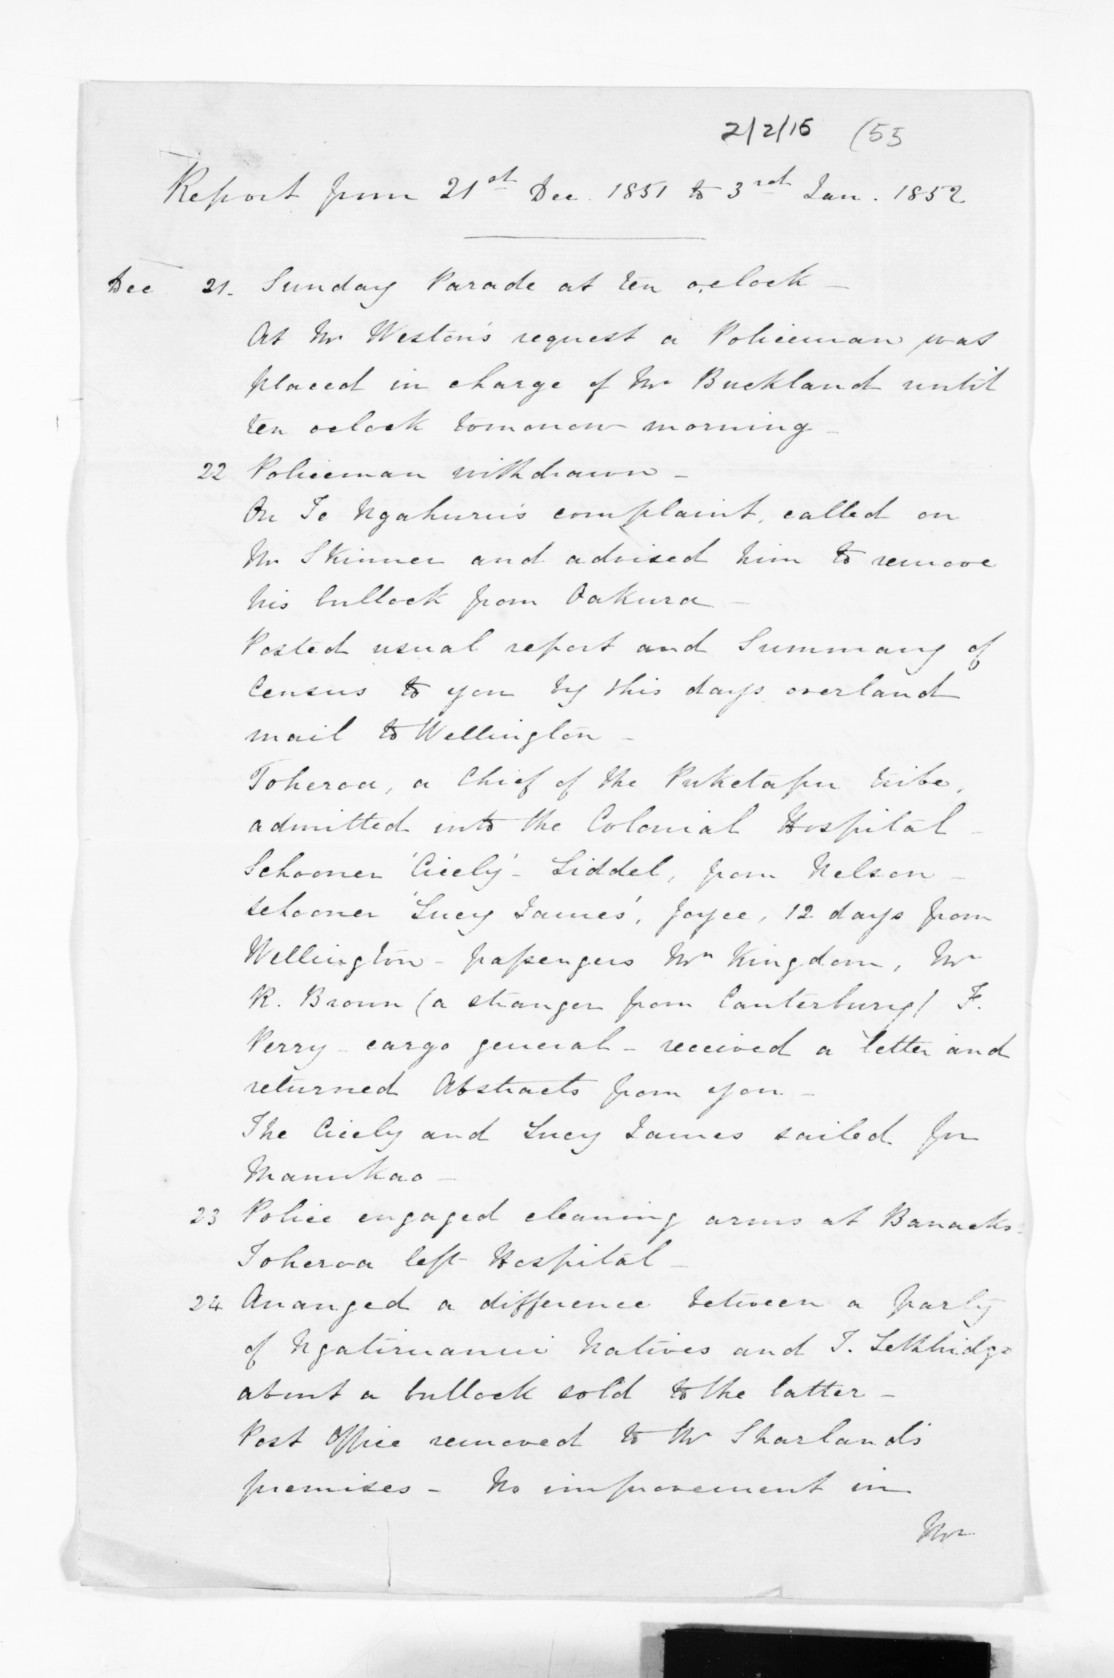 2/2/15 (55
Report from 21st Dec. 1851 to 3rd Jan. 1852
Dec 21. Sunday Parade at ten oclock -
At Mr Weston's request a Policeman was
placed in charge of Mr Buckland until
ten oclock tomorrow morning -
22 Policeman withdrawn -
On Te Ngahuru's complaint, called on
Mr Skinner and advised him to remove
his bullock from Oakura -
Posted usual report and Summary of
Census to you by this days overland
mail to Wellington -
Toheroa, a Chief of the Puketapu tribe,
admitted into the Colonial Hospital -
Schooner 'Cicely' - Liddel, from Nelson -
schooner 'Lucy James', Joyce, 12 days from
Wellington - passengers Mrs Kingdom, Mr
R. Brown (a stranger from Canterbury) F.
Perry - cargo general - received a letter and
returned Abstracts from you -
The Cicely and Lucy James sailed for
Manukao -
23 Police engaged cleaning arms at Baracks -
Toheroa left Hospital -
24 Arranged a difference between a party
of Ngatiruanui Natives and T. Lethbridge
about a bullock sold to the latter -
Post Office removed to Mr Sharland's
premises - No improvement in
Mr